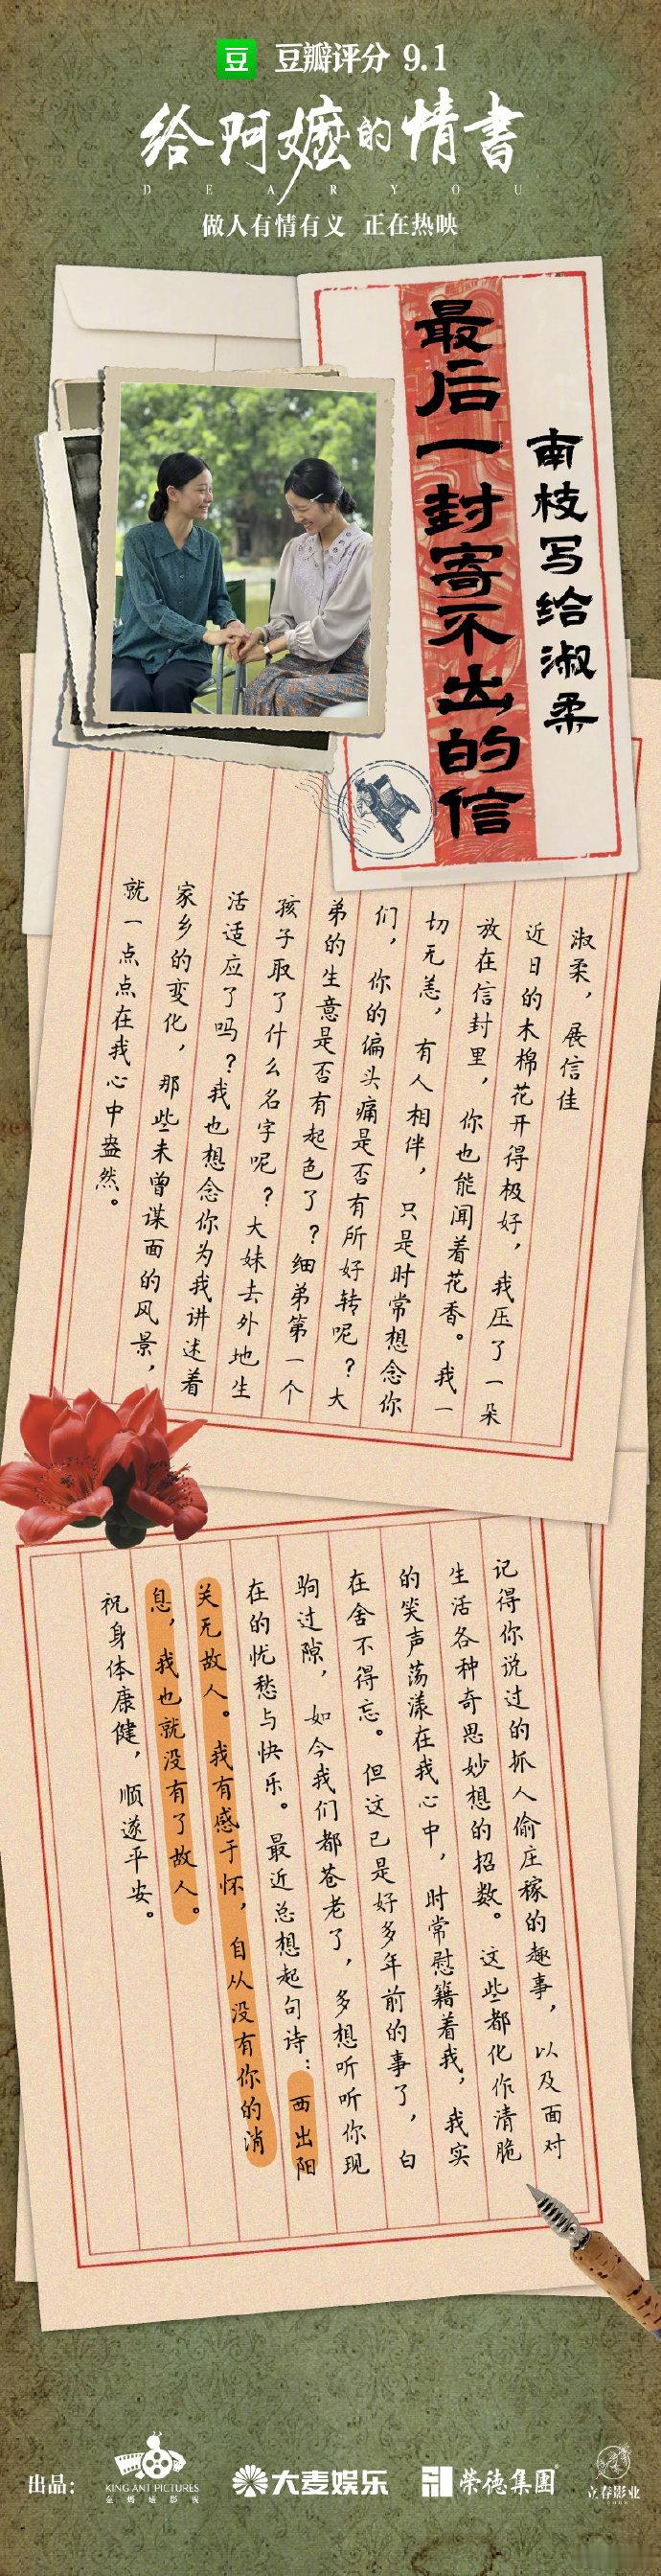 豆 豆瓣评分 9.1
给阿嬷的情書
DEAR YOU
做人有情有义 正在热映
南枝写给淑柔
最后一封寄不出的信
淑柔，展信佳
近日的木棉花开得极好，我压了一朵
放在信封里，你也能闻着花香。我一
切无恙，有人相伴，只是时常想念你
们，你的偏头痛是否有所好转呢？大
弟的生意是否有起色了？细弟第一个
孩子取了什么名字呢？大妹去外地生
活适应了吗？我也想念你为我讲述着
家乡的变化，那些未曾谋面的风景，
就一点点在我心中盎然。
记得你说过的抓人偷庄稼的趣事，以及面对
生活各种奇思妙想的招数。这些都化作清脆
的笑声荡漾在我心中，时常慰籍着我，我实
在舍不得忘。但这已是好多年前的事了，白
驹过隙，如今我们都苍老了，多想听听你现
在的忧愁与快乐。最近总想起句诗：西出阳
关无故人。我有感于怀，自从没有你的消
息，我也就没有了故人。
祝身体康健，顺遂平安。
出品：
KING ANT PICTURES
大麦娱乐
荣德集團
立春影业